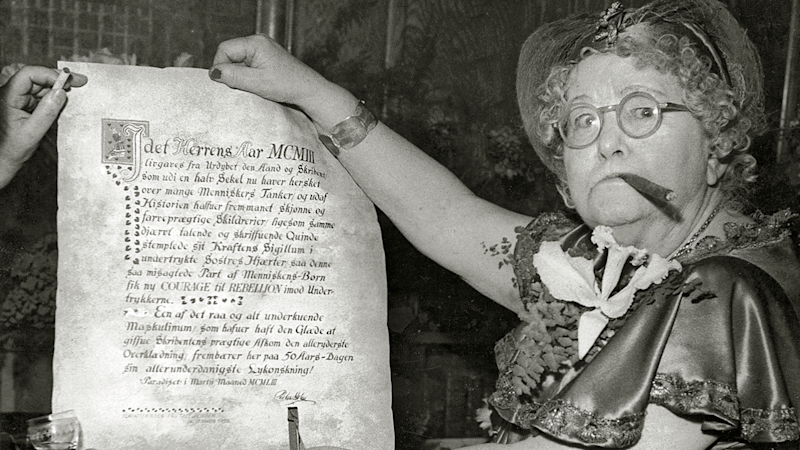 I det Herrens Aar MCMIII
udi en halv Sekel nu haver hersket
over mange Menniskers Tanker, og udaf
Historien hafuer fremmanet skjønne og
farveprægtige Skildrerier/ ligesom samme
djærvt talende og skriffuende Quinde
stemplede sit Kraftens Sigillum i
undertrykte Søstres Hjærter, saa denne
saa misagtede Part af Menneskens-Børn
fik ny COURAGE til REBELLION imod Under-
trykkerne.
Ein af det raa og alt underkuende
Maskulinum/ som hafuer haft den Glæde at
giffue Skribentens prægtige Afkom den alleryderste
Overklædning, frembærer her paa 50 Aars-Dagen
sin allerunderdanigste Lykønskning!
Paradiset i Martij Maaned MCMLIII